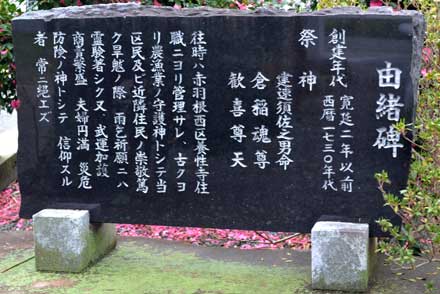 由緒碑
創建年代 寛延二年以前
西暦一七三〇年代
祭神
建速須佐之男命
倉稲魂尊
歓喜尊天
往時ハ赤羽根西区養性寺住
職ニヨリ管理サレ、古クヨ
リ農漁業ノ守護神トシテ当
区民及ビ近隣住民ノ崇敬篤
ク旱魃ノ際、雨乞祈願ニハ
霊験著シク又、武運加護
商売繁盛 夫婦円満 災危
防除ノ神トシテ 信仰スル
者 常ニ絶エズ